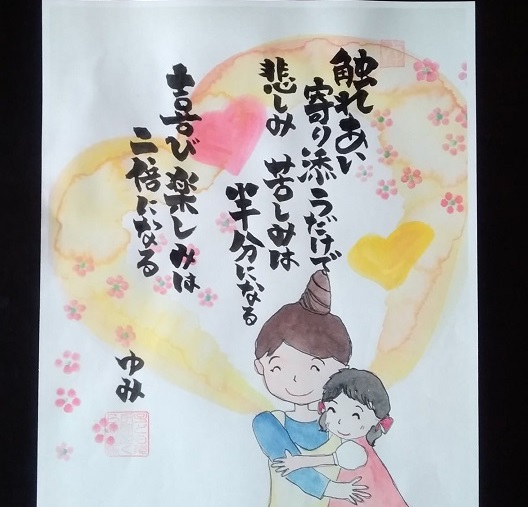 触れあい
寄り添うだけで
悲しみ 苦しみは
半分になる
喜び 楽しみは
二倍になる
ゆみ